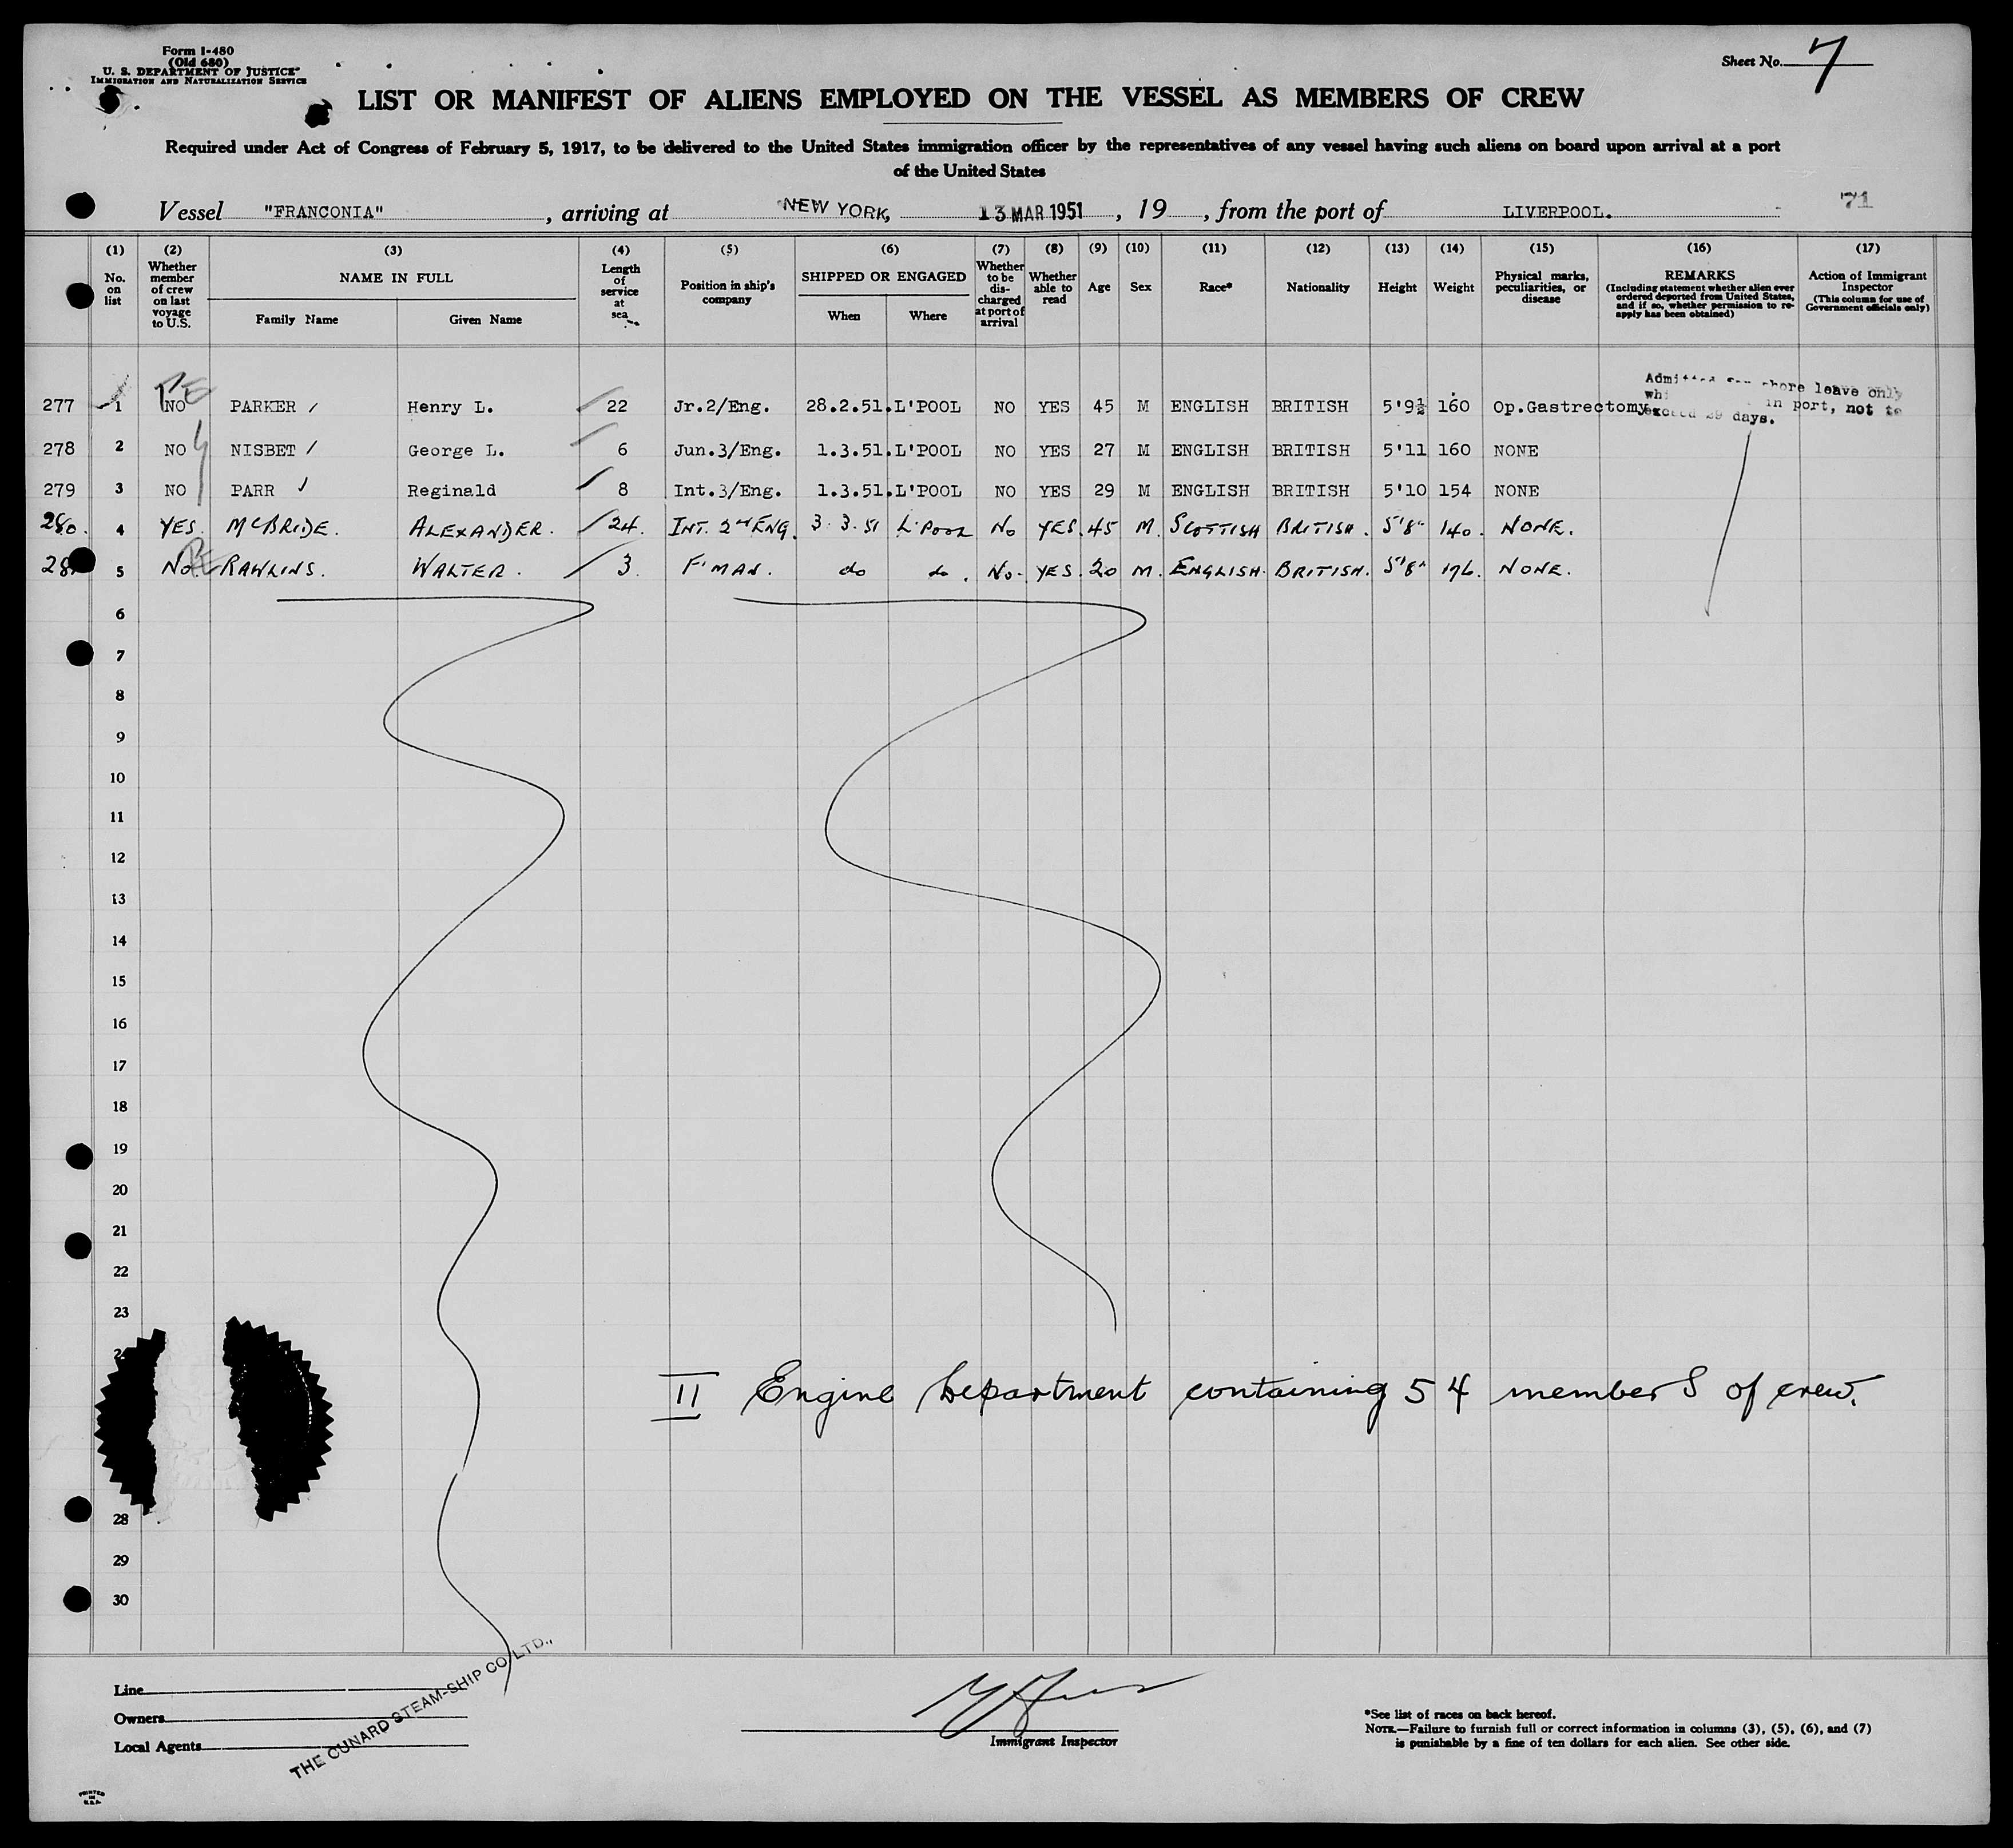 Form I-480
(Old 680)
U. S. DEPARTMENT OF JUSTICE
IMMIGRATION AND NATURALIZATION SERVICE
Sheet No. 7
LIST OR MANIFEST OF ALIENS EMPLOYED ON THE VESSEL AS MEMBERS OF CREW
Required under Act of Congress of February 5, 1917, to be delivered to the United States immigration officer by the representatives of any vessel having such aliens on board upon arrival at a port
of the United States
Vessel "FRANCONIA", arriving at NEW YORK, 13 MAR 1951, 19, from the port of LIVERPOOL. 71
(1) (2) (3) (4) (5) (6) (7) (8) (9) (10) (11) (12) (13) (14) (15) (16) (17)
No. on list
Whether member of crew on last voyage to U.S.
NAME IN FULL
Family Name Given Name
Length of service at sea
Position in ship's company
SHIPPED OR ENGAGED
When Where
Whether to be discharged at port of arrival
Whether able to read
Age
Sex
Race*
Nationality
Height
Weight
Physical marks, peculiarities, or disease
REMARKS
(Including statement whether alien ever ordered deported from United States, and if so, whether permission to re-apply has been obtained)
Action of Immigrant Inspector
(This column for use of Government officials only)
Admitted shore leave only
in port, not to
exceed 29 days.
277 1 NO PARKER Henry L. 22 Jr.2/Eng. 28.2.51. L'POOL NO YES 45 M ENGLISH BRITISH 5'9½ 160 Op.Gastrectomy
278 2 NO NISBET George L. 6 Jun.3/Eng. 1.3.51. L'POOL NO YES 27 M ENGLISH BRITISH 5'11 160 NONE
279 3 NO PARR Reginald 8 Int.3/Eng. 1.3.51. L'POOL NO YES 29 M ENGLISH BRITISH 5'10 154 NONE
280. 4 YES. McBRIDE. ALEXANDER. 24. INT. 2nd ENG. 3.3.51 L'POOL No YES. 45 M. SCOTTISH BRITISH. 5'8" 140. NONE.
28 5 No RAWLINS. WALTER. 3. F'MAN. do do. No. YES. 20 M. ENGLISH. BRITISH. 5'8" 176. NONE.
6
7
8
9
10
11
12
13
14
15
16
17
18
19
20
21
22
23
2
II Engine Department containing 54 members of crew.
28
29
30
Line
Owners
Local Agents
THE CUNARD STEAM-SHIP CO. LTD.,
Immigrant Inspector
*See list of races on back hereof.
NOTE.—Failure to furnish full or correct information in columns (3), (5), (6), and (7)
is punishable by a fine of ten dollars for each alien. See other side.
PRINTED
IN
U.S.A.